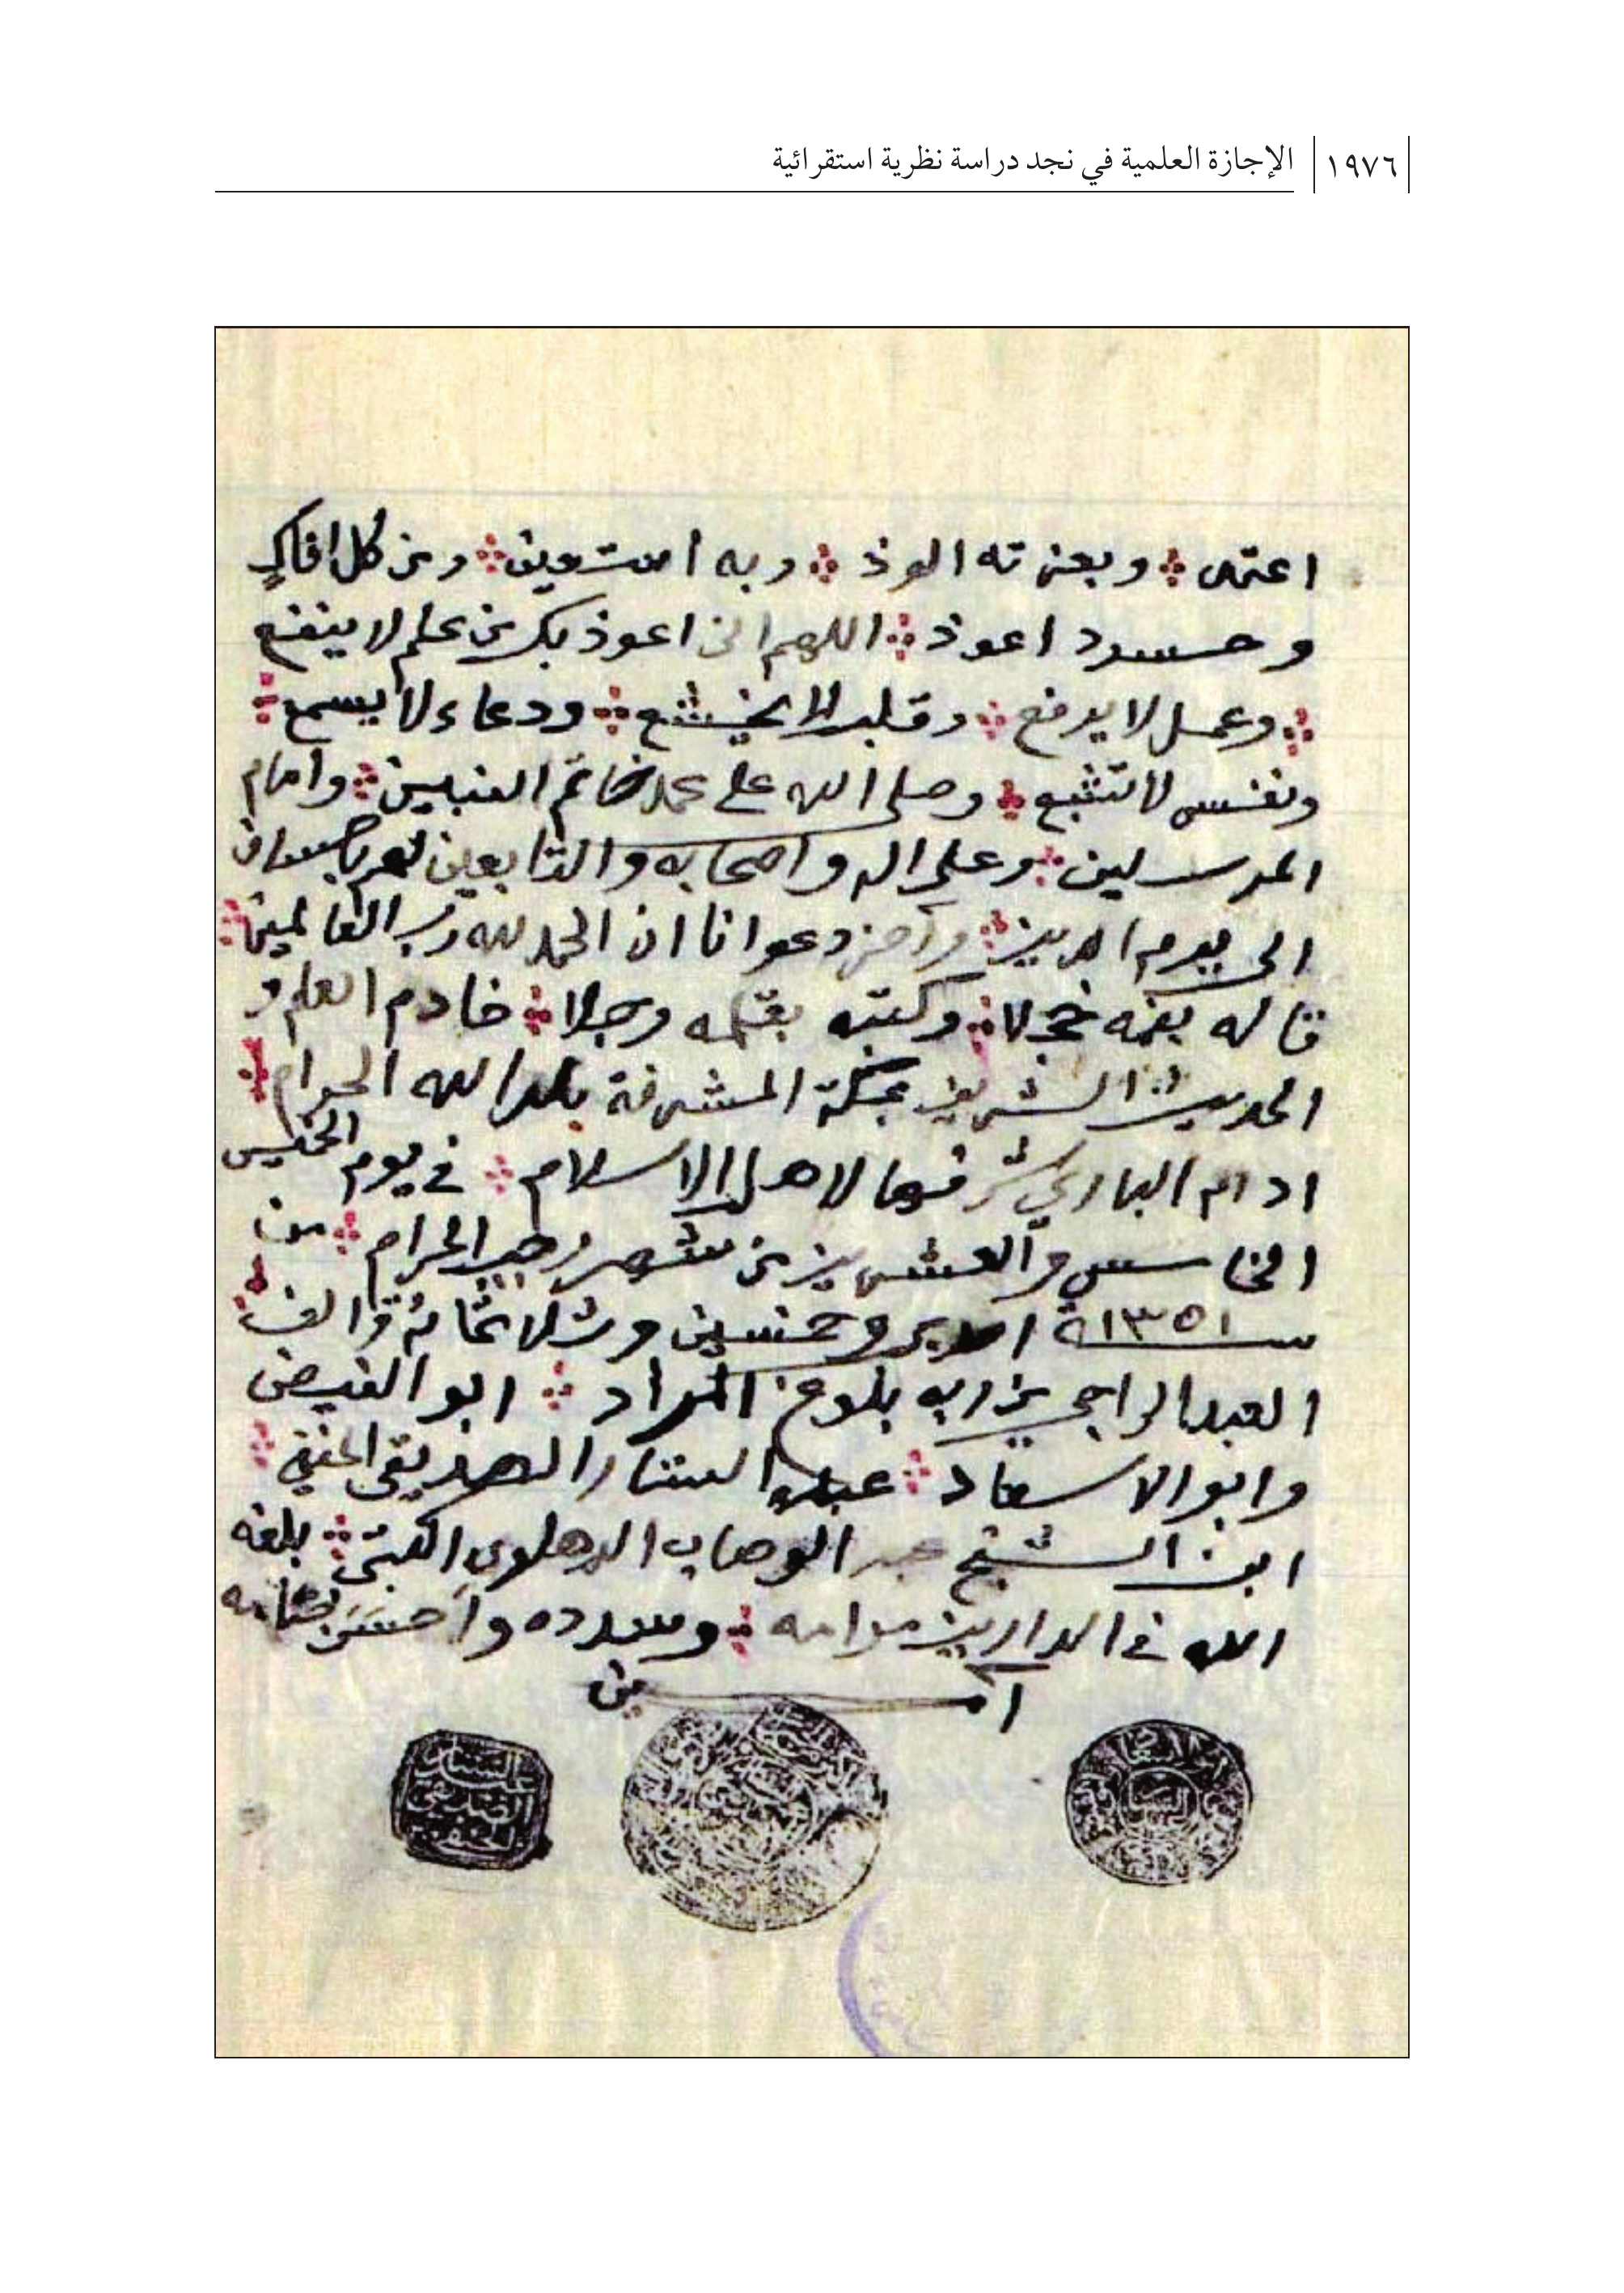 ١٩٧٦ الإجازة العلمية في نجد دراسة نظرية استقرائية
اعتمد وبعزته الوذ وبه استعين ومن كل افاكٍ
وحسود اعوذ اللهم انى اعوذ بك من علم لا ينفع
وعمل لا يرفع وقلب لا يخشع ودعاء لا يسمع
ونفس لا تشبع وصلى الله على محمد خاتم النبيين وامام
المرسلين وعلى اله واصحابه والتابعين لهم باحسان
الى يوم الدين وآخر دعوانا ان الحمد لله رب العالمين
قاله بفمه خجلا وكتبه بقلمه وجلا خادم العلم و
الحديث الشريف بمكة المشرفة بلد الله الحرام
ادام الباري شرفها لاهل الاسلام في يوم الخميس
الخامس والعشرين من شهر رجب الحرام من
سنة ١٣٥١ احدى وخمسين وثلاثمائة والف
العبد الراجي من ربه بلوغ المراد ابو الفيض
وابو الاسعاد عبد الستار الصديقي الحنفي
ابن الشيخ عبد الوهاب الدهلوى الكتبي بلغه
الله في الدارين مرامه وسدده وأحسن ختامه
آمين